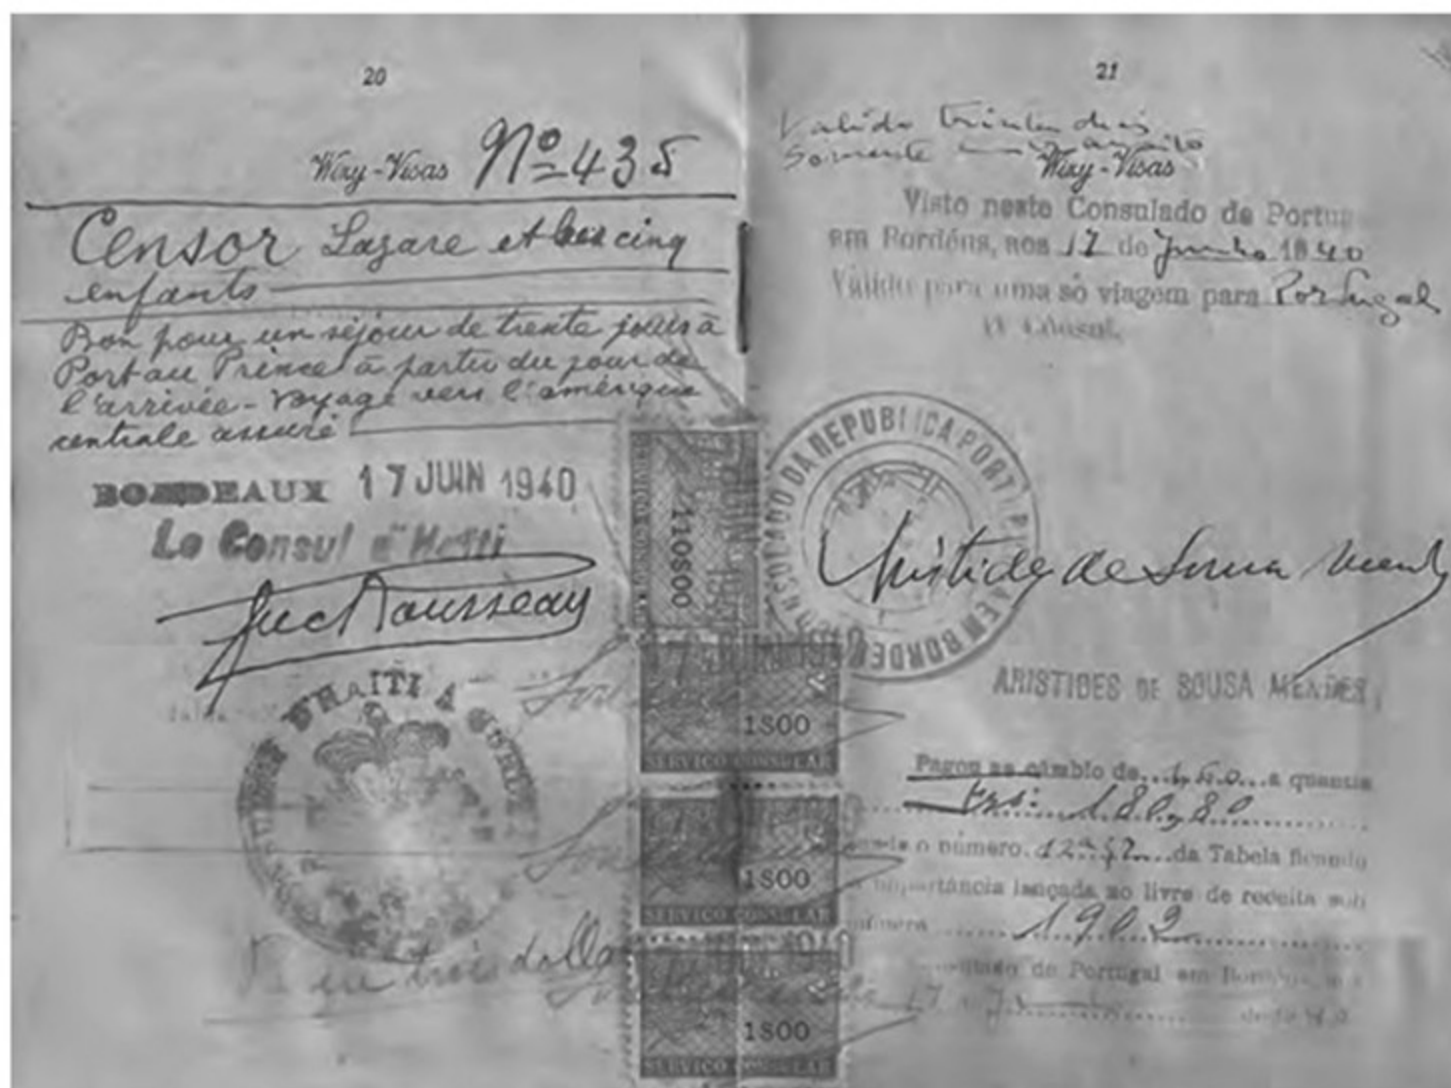 20
Wizy-Visas Nº 435
Censor Lazare et ses cinq
enfants
Bon pour un séjour de trente jours à
Port au Prince à partir du jour de
l'arrivée - Voyage vers l'amérique
centrale assuré
BORDEAUX 17 JUIN 1940
Le Consul d'Haïti
D'HAITI A
trois dolla
110$00
1$00
SERVIÇO CONSULAR
1$00
SERVIÇO CONSULAR
1$00
SERVIÇO CONSULAR
21
Valido trinta dias
Somente
Wizy-Visas
Visto neste Consulado de Portu
em Bordéus, aos 17 de Junho 1940
Válido para uma só viagem para Portugal
O Cónsul,
CONSULADO DA REPUBLICA PORT EM BORDE
Aristides de Sousa Mendes
ARISTIDES DE SOUSA MENDES
Pagou ao câmbio de a quantia
180,80
o número da Tabela ficando
importância lançada ao livro de receita sob
número 1902
de Portugal em
17